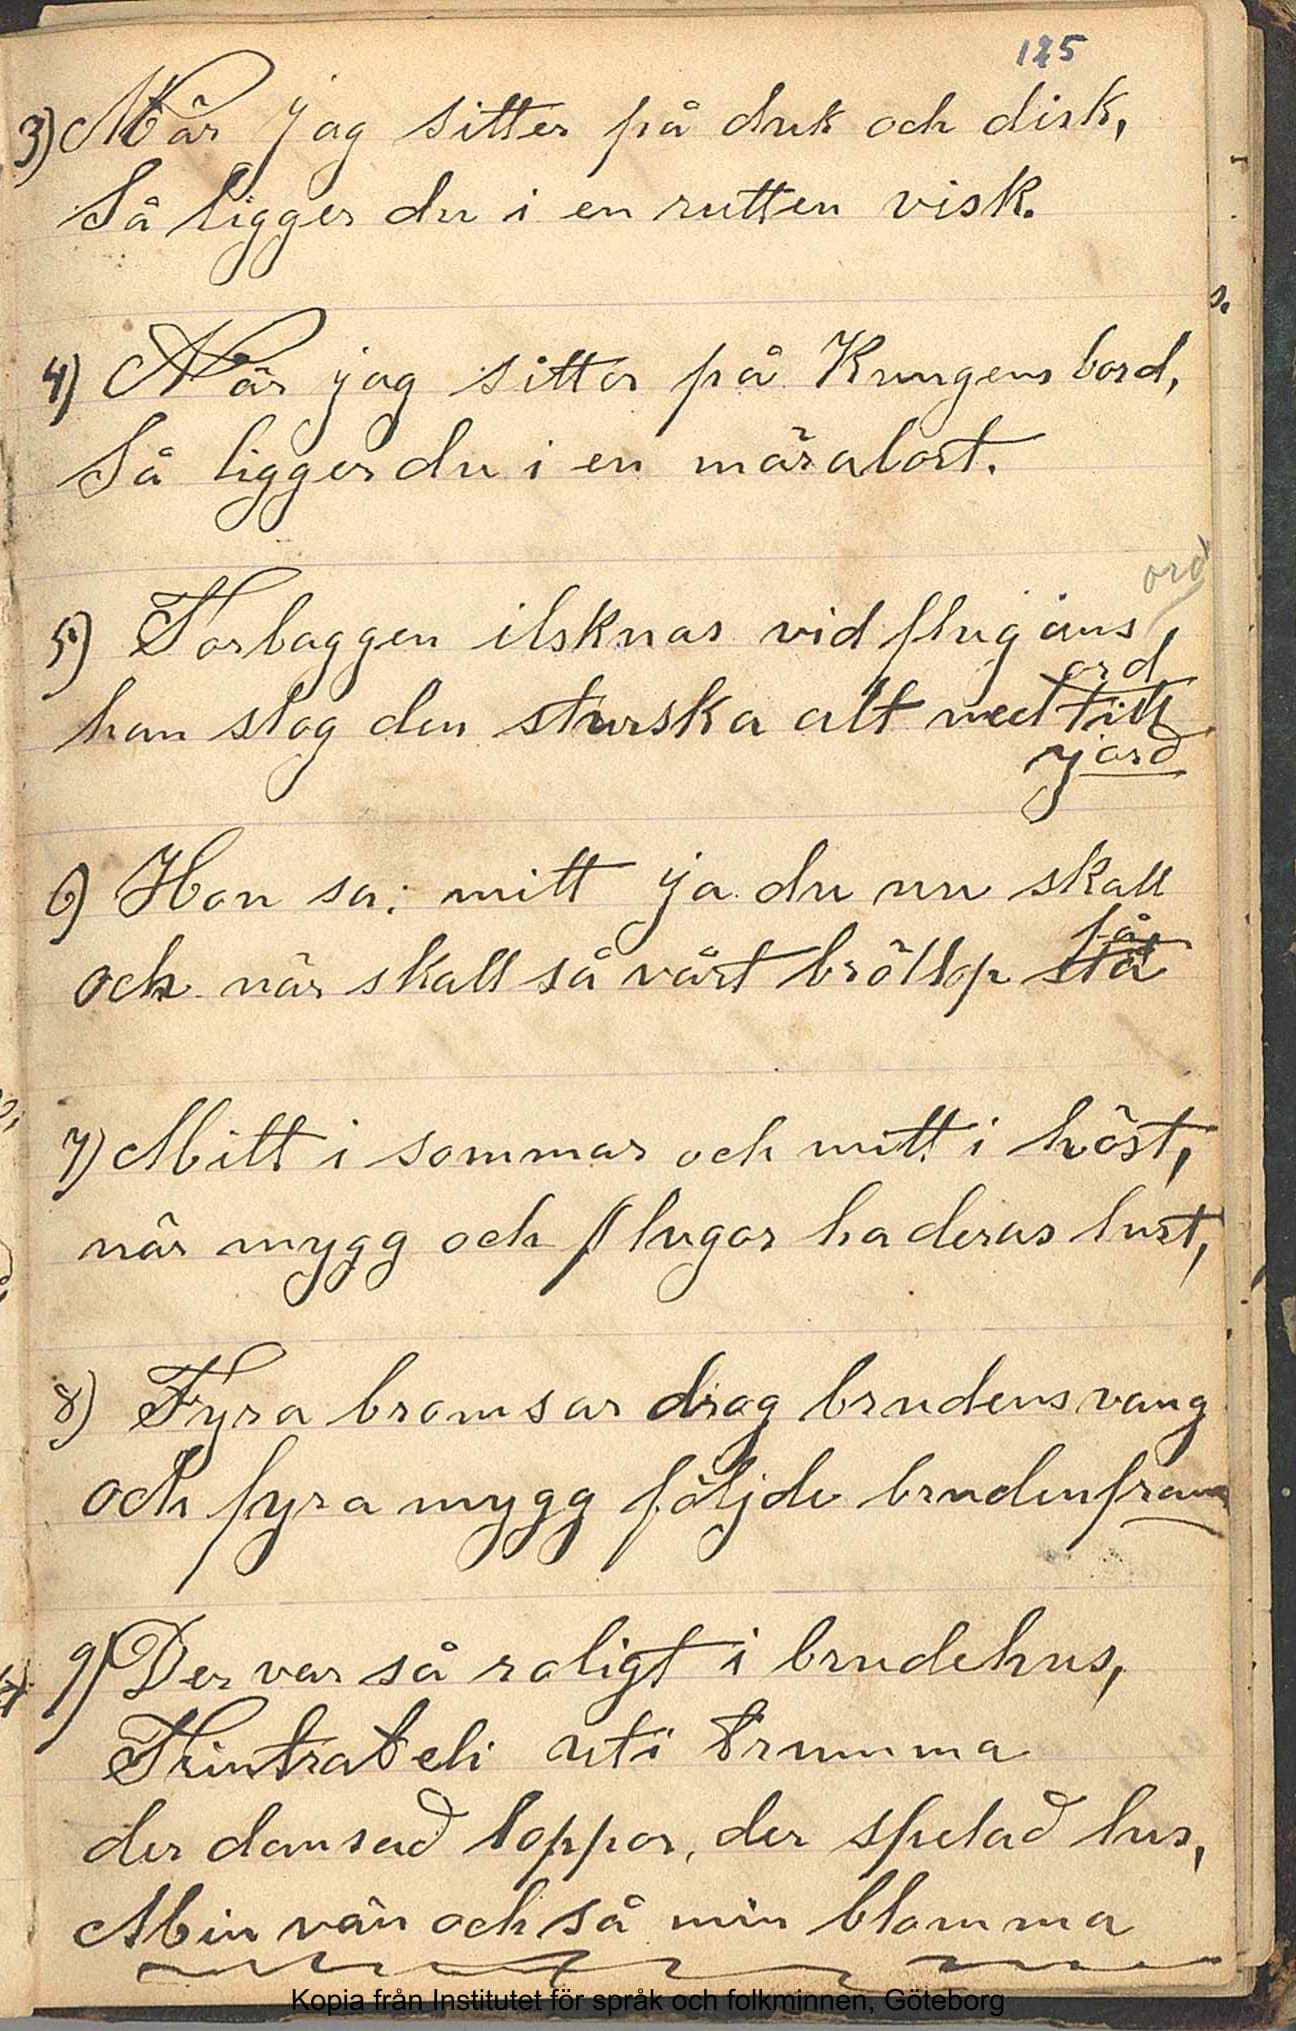 125
3) När jag sitter på duk och disk,
Så ligger du i en rutten visk.
4) När jag sitter på Kungens bord,
Så ligger du i en märalort.
ord
5) Torbaggen ilsknar vid flugans,
ord
han slog den sturska alt ned till
jord
6) Hon sa: mitt ja du nu skall
få,
och när skall så vårt bröllop stå
7) Mitt i sommar och mitt i höst,
när mygg och flugor ha deras lust,
8) Fyra bromsar drog brudens vang
och fyra mygg följde bruden fram
9) Der var så roligt i brudehus,
Trintrateli uti trumma
der dansad loppor, der spelad lus,
Min vän och så min blomma
Kopia från Institutet för språk och folkminnen, Göteborg